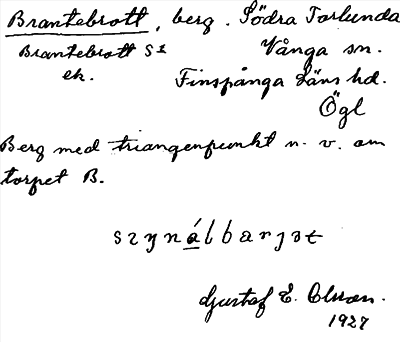 Brantebrott, berg. Södra Torlunda
Brantebrott S:s Vånga sn.
ek. Finspånga Läns hd.
Ögl
Berg med triangenpunkt n. v. om
torpet B.
Gustaf E. Olsson.
1927